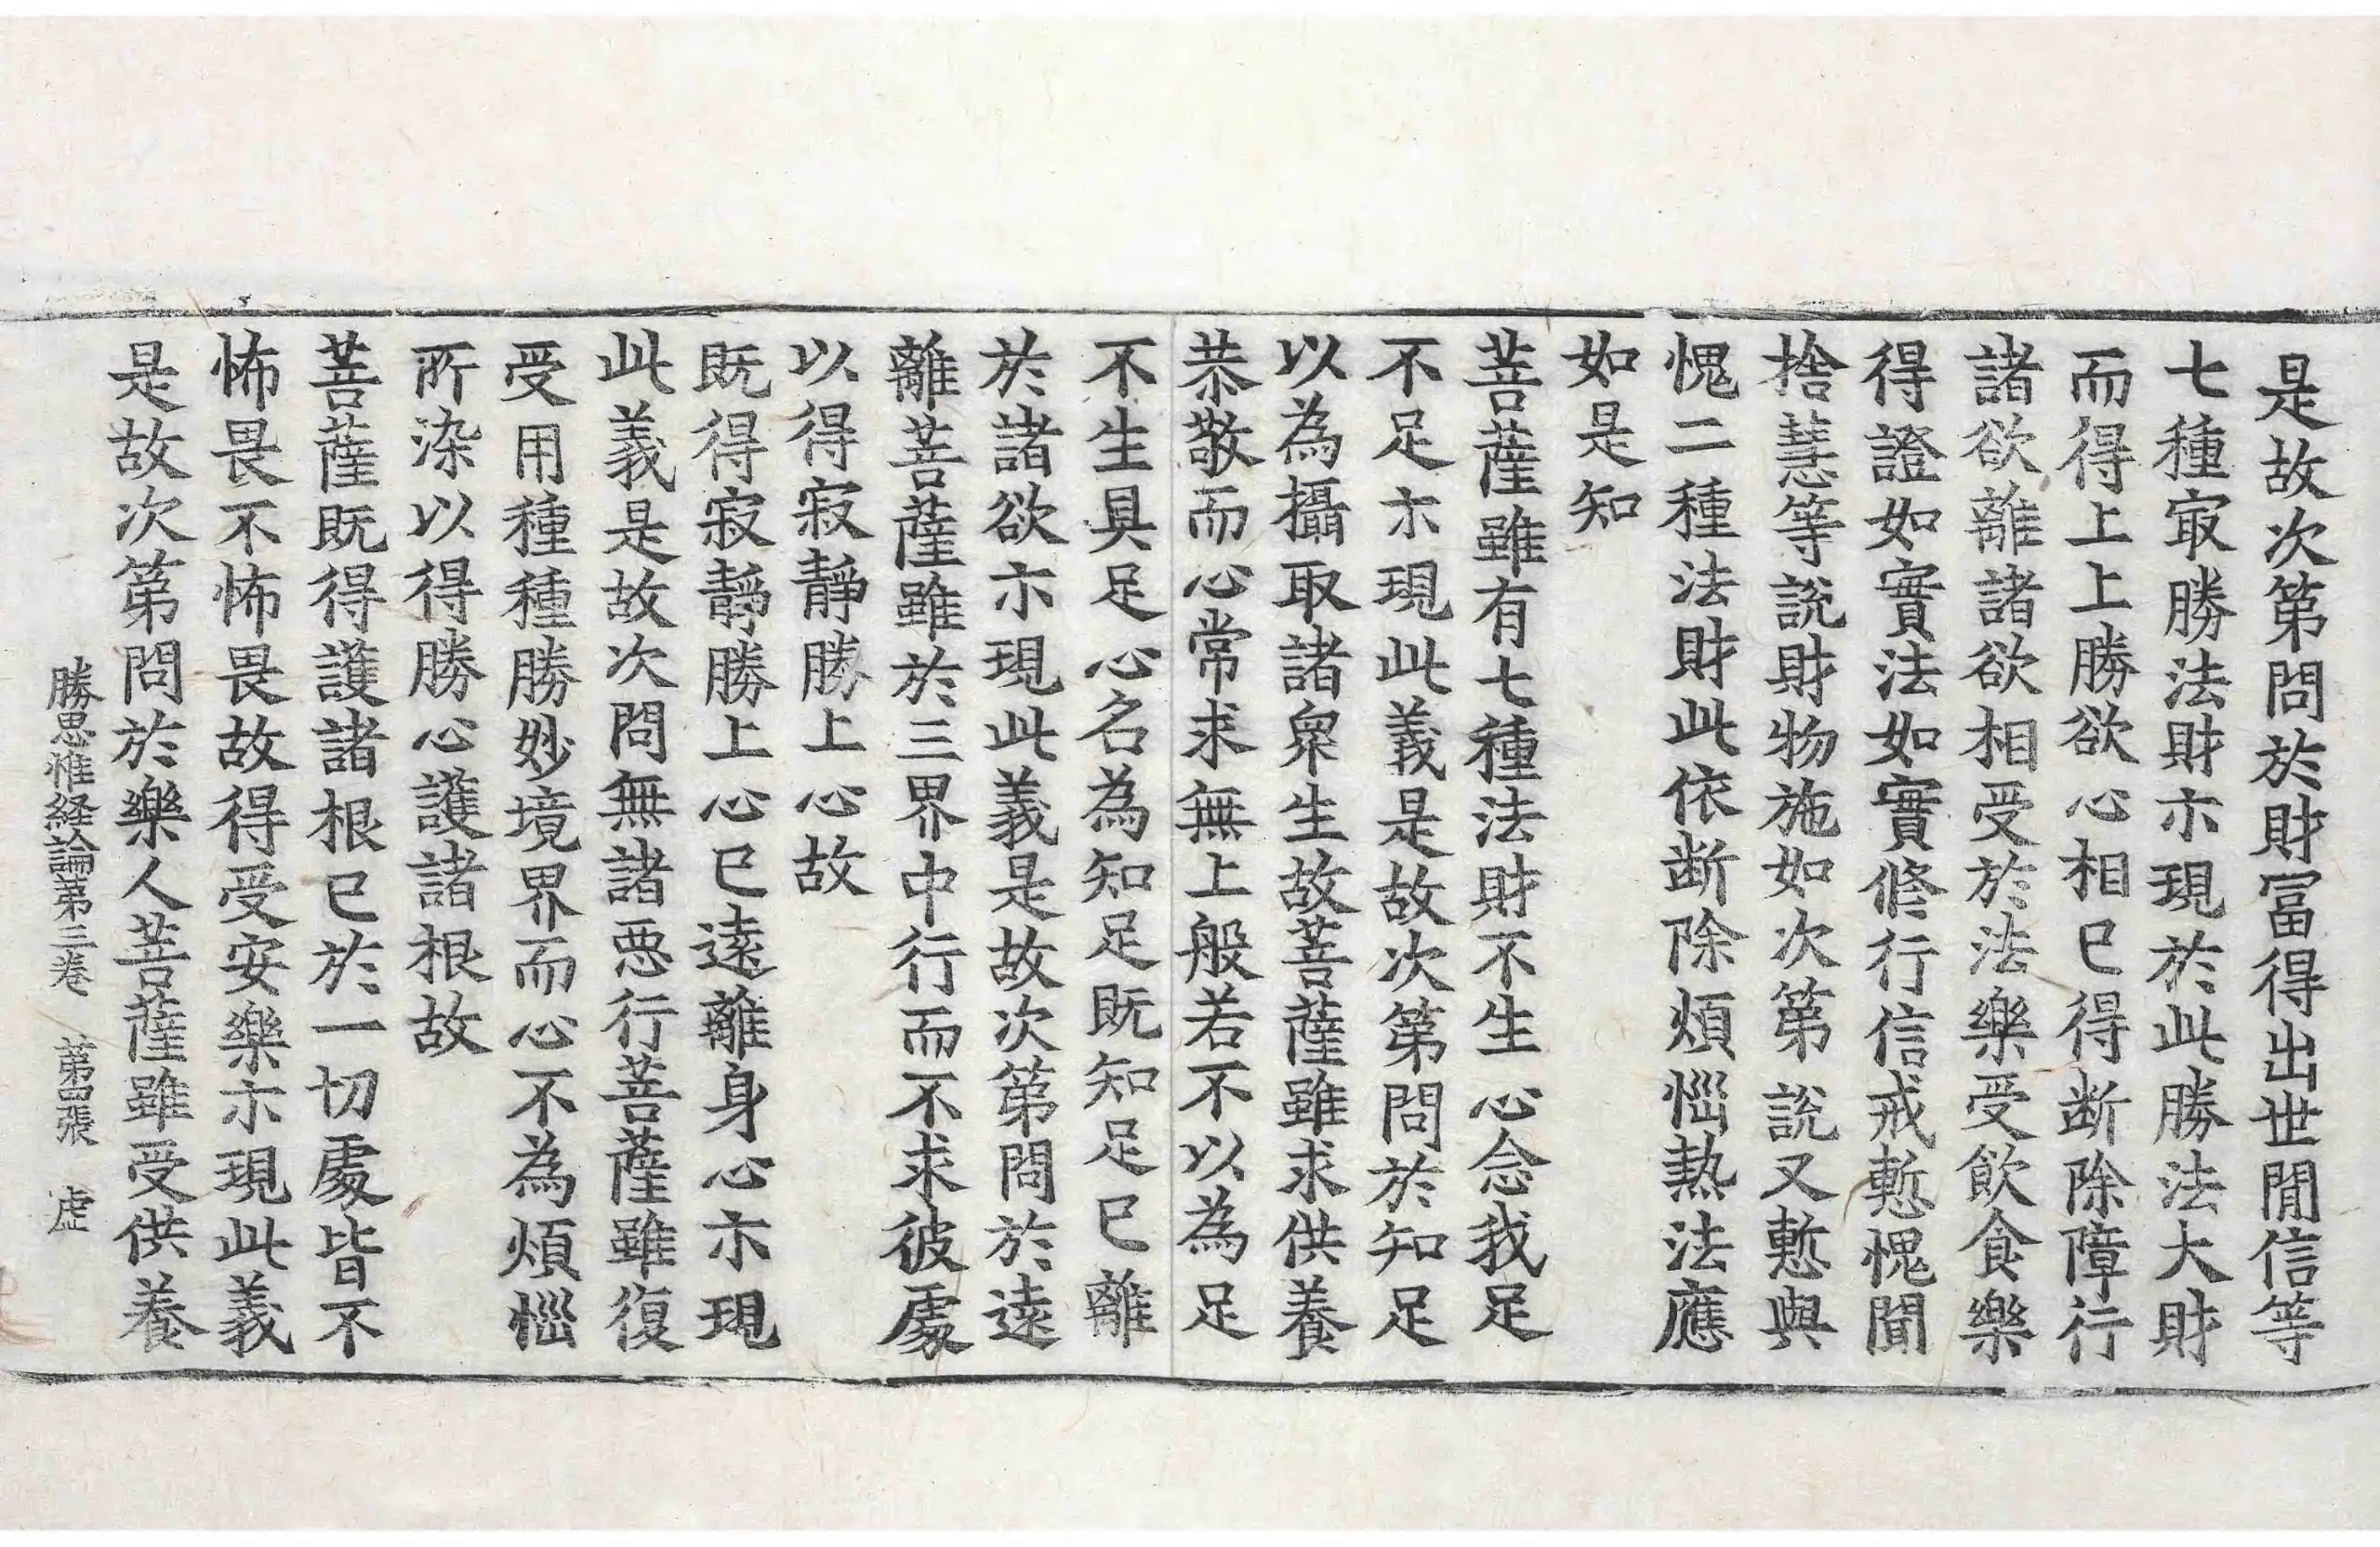 是故次第問於財冨得出世閒信等
七種㝡勝法財亦現於此勝法大財
而得上上勝欲心相已得断除障行
諸欲離諸欲相受於法樂受飮食樂
得證如實法如實修行信戒慙愧聞
捨慧等說財物施如次第說又慙與
愧二種法財此依断除煩惱熱法應
如是知
菩薩雖有七種法財不生心念我足
不足亦現此義是故次第問於知足
以為攝取諸衆生故菩薩雖求供養
恭敬而心常求無上般若不以為足
不生具足心名為知足既知足已離
於諸欲亦現此義是故次第問於逺
離菩薩雖於三界中行而不求彼處
以得寂靜勝上心故
既得寂靜勝上心已逺離身心亦現
此義是故次問無諸惡行菩薩雖復
受用種種勝妙境界而心不為煩惱
所染以得勝心護諸根故
菩薩既得護諸根已於一切處皆不
怖畏不怖畏故得受安樂亦現此義
是故次第問於樂人菩薩雖受供養
勝思惟経論第三卷　第四張　虛